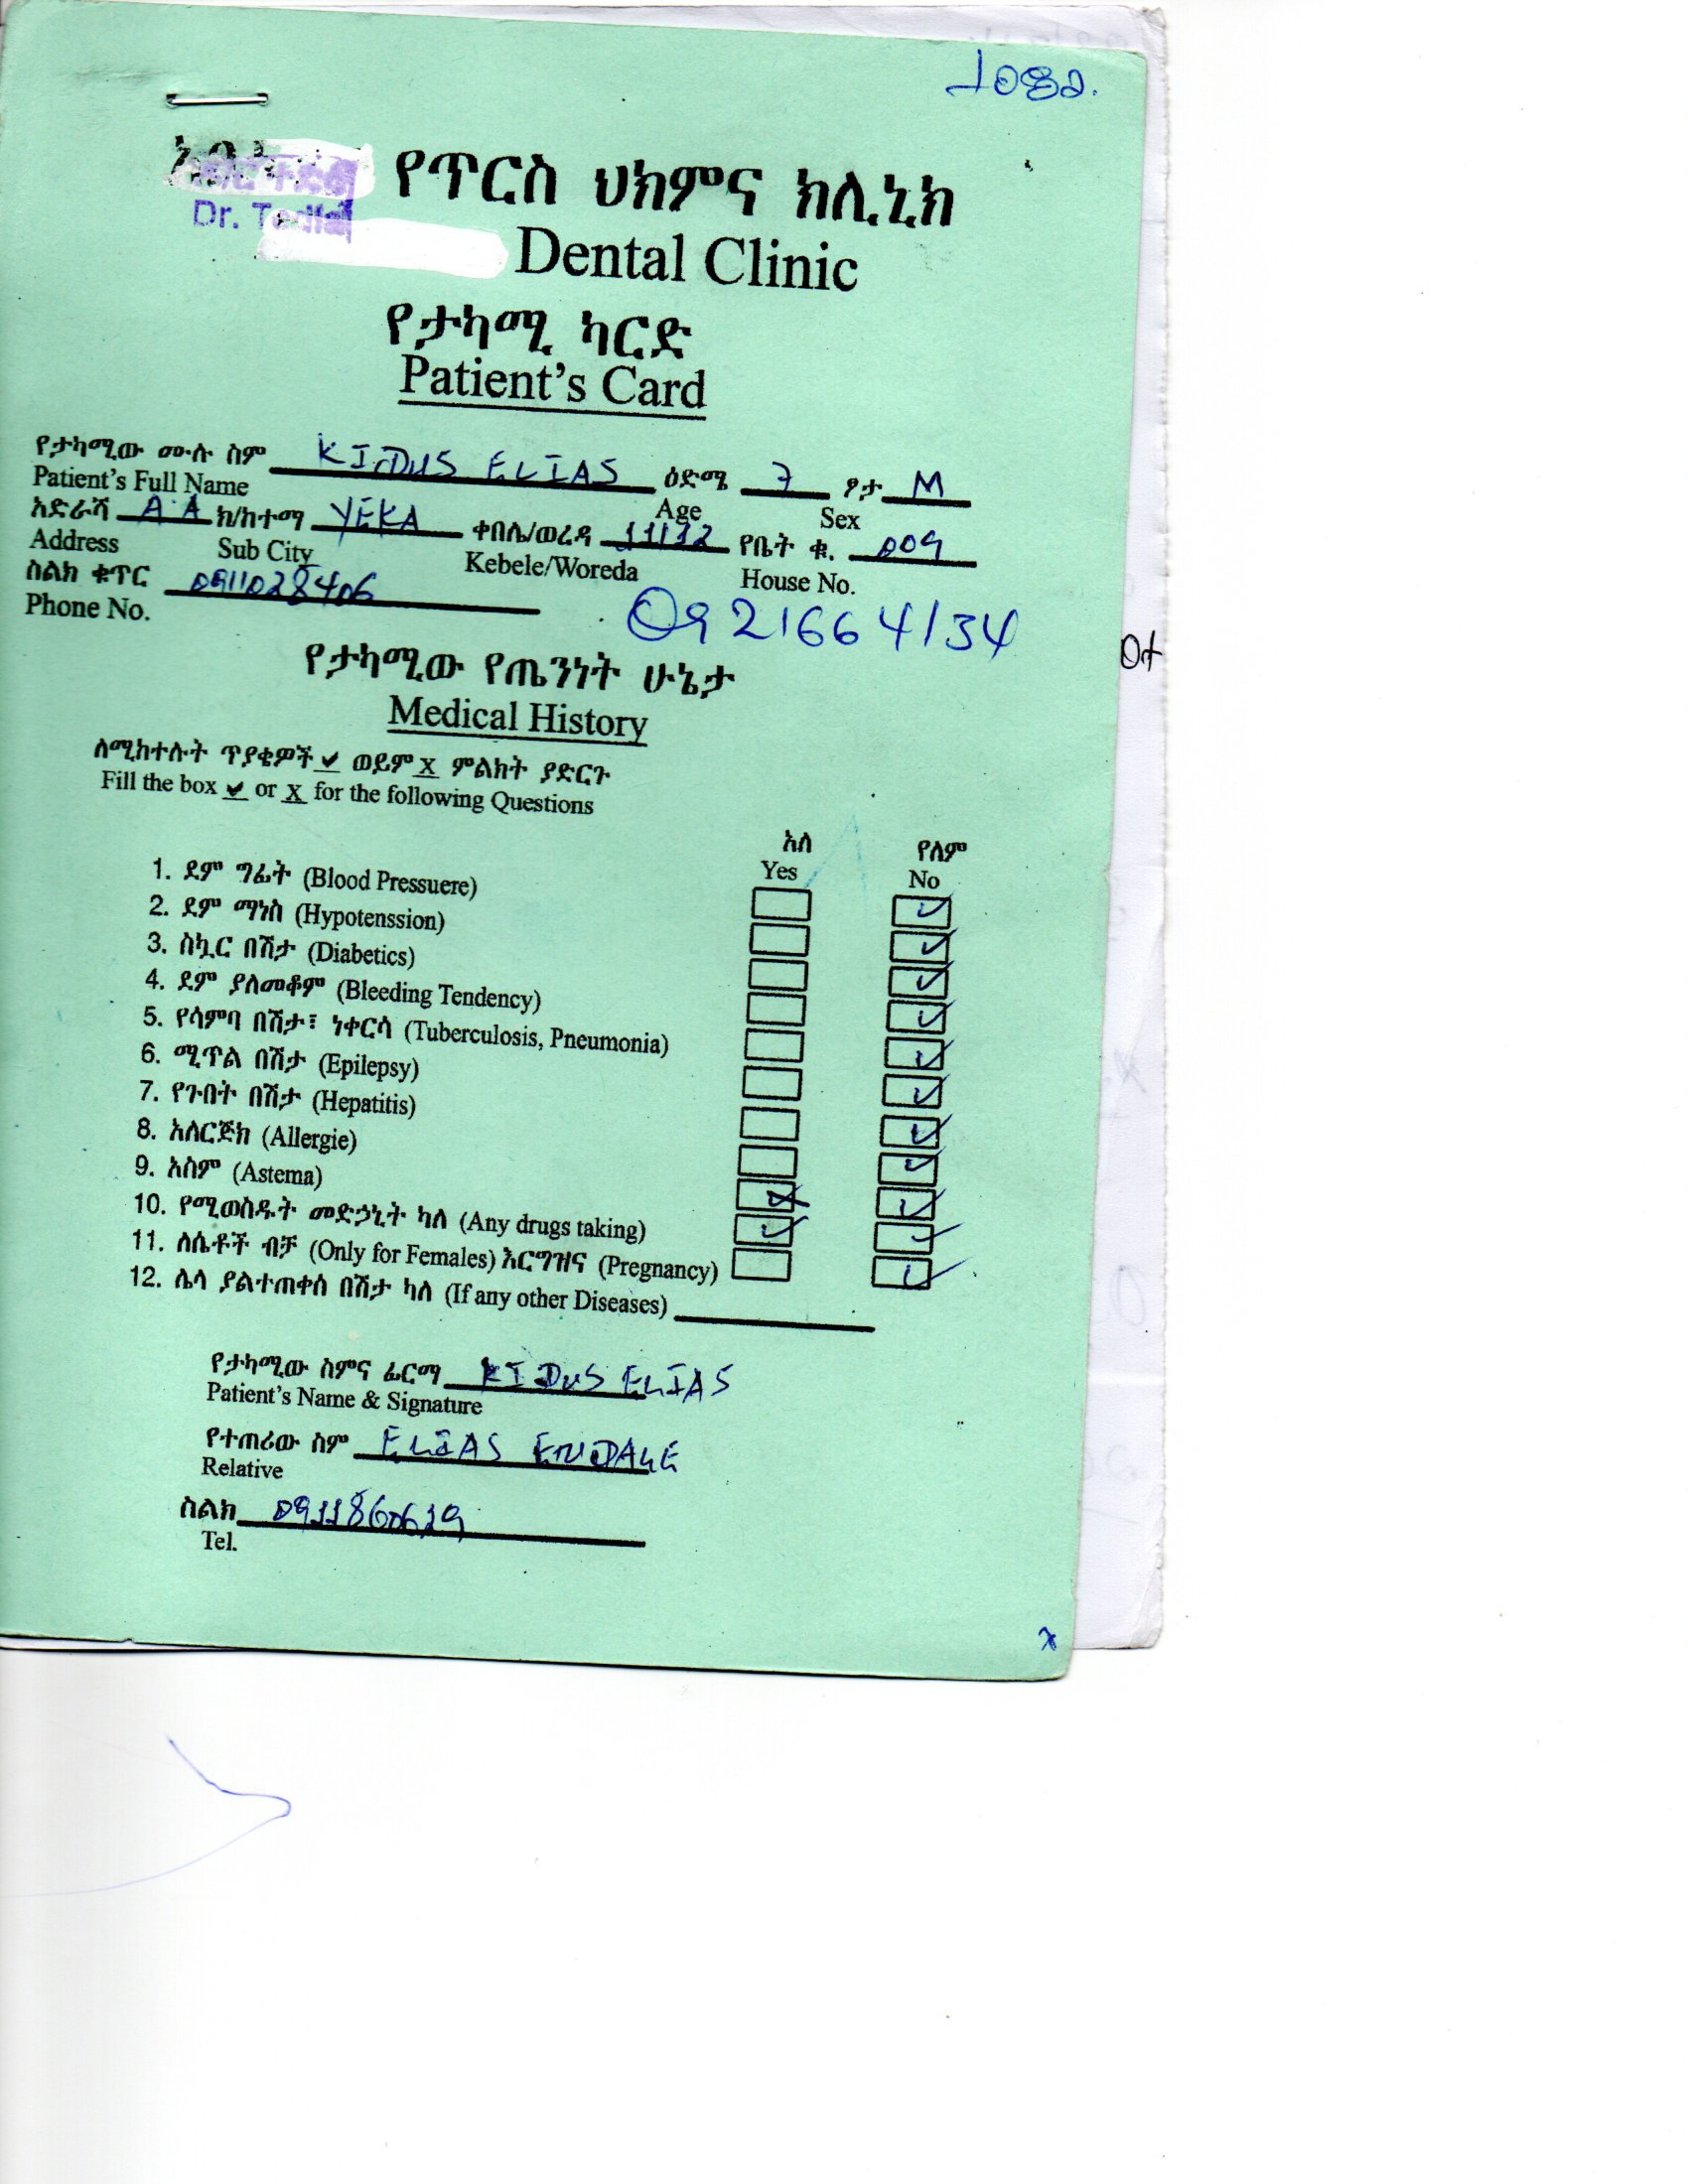 1082.
የጥርስ ህክምና ክሊኒክ
Dr.
Dental Clinic
የታካሚ ካርድ
Patient's Card
የታካሚው ሙሉ ስም KIDUS ELIAS ዕድሜ 7 ፆታ M
Patient's Full Name Age Sex
አድራሻ A.A ክ/ከተማ YEKA ቀበሌ/ወረዳ 11/12 የቤት ቁ. 009
Address Sub City Kebele/Woreda House No.
ስልክ ቁጥር 0911028406
Phone No. 0921664134
የታካሚው የጤንነት ሁኔታ
Medical History
ለሚከተሉት ጥያቄዎች ✔ ወይም X ምልክት ያድርጉ
Fill the box ✔ or X for the following Questions
አለ የለም
Yes No
1. ደም ግፊት (Blood Pressuere) ✓
2. ደም ማነስ (Hypotenssion) ✓
3. ስኳር በሽታ (Diabetics) ✓
4. ደም ያለመቆም (Bleeding Tendency) ✓
5. የሳምባ በሽታ፣ ነቀርሳ (Tuberculosis, Pneumonia) ✓
6. ሚጥል በሽታ (Epilepsy) ✓
7. የጉበት በሽታ (Hepatitis) ✓
8. አለርጅክ (Allergie) ✓
9. አስም (Astema) ✓
10. የሚወስዱት መድኃኒት ካለ (Any drugs taking) ✓
11. ለሴቶች ብቻ (Only for Females) እርግዝና (Pregnancy) ✓
12. ሌላ ያልተጠቀሰ በሽታ ካለ (If any other Diseases)
የታካሚው ስምና ፊርማ KIDUS ELIAS
Patient's Name & Signature
የተጠሪው ስም ELIAS ENDALE
Relative
ስልክ 0911860619
Tel.